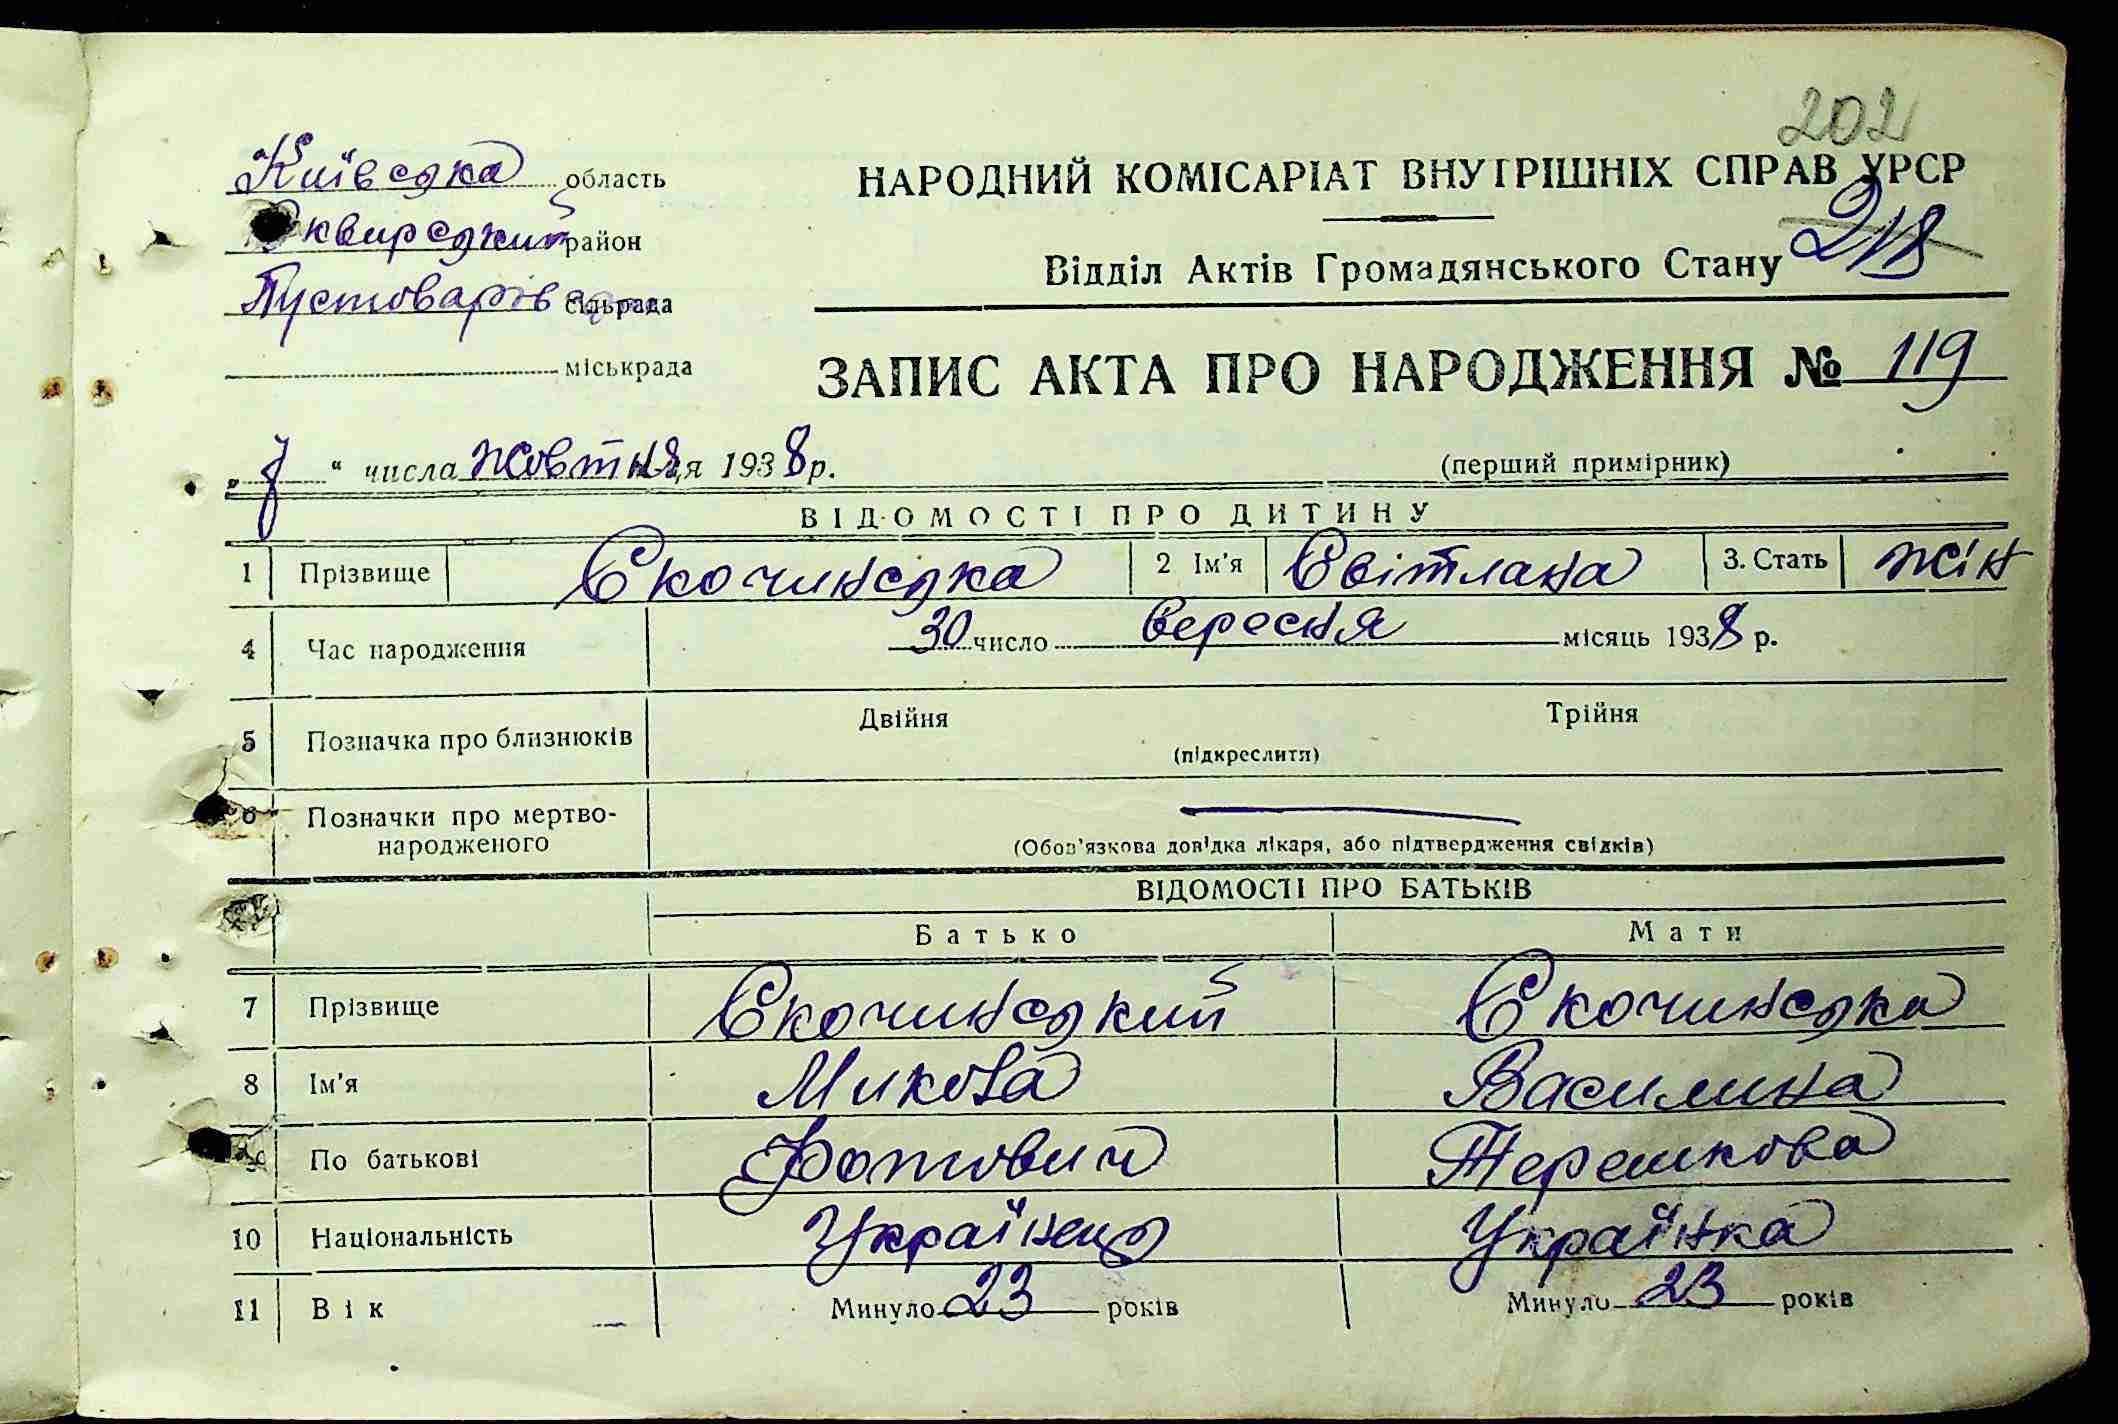 202
Київська область
Сквирський район
Пустоварів сільрада
міськрада
НАРОДНИЙ КОМІСАРІАТ ВНУТРІШНІХ СПРАВ УРСР
218
Відділ Актів Громадянського Стану
ЗАПИС АКТА ПРО НАРОДЖЕННЯ № 119
„ “ числа жовтня 1938 р.
(перший примірник)
ВІДОМОСТІ ПРО ДИТИНУ
1 Прізвище Скочинська 2 Ім'я Світлана 3. Стать жін
4 Час народження 30 число вересня місяць 1938 р.
5 Позначка про близнюків Двійня Трійня
(підкреслити)
6 Позначки про мертво-
народженого
(Обов'язкова довідка лікаря, або підтвердження свідків)
ВІДОМОСТІ ПРО БАТЬКІВ
Батько Мати
7 Прізвище Скочинський Скочинська
8 Ім'я Микола Василина
9 По батькові Фотович Терешкова
10 Національність Українець Українка
11 Вік Минуло 23 років Минуло 23 років